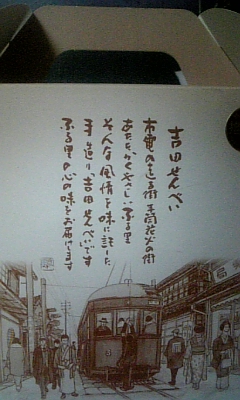 吉田せんべい
市電の走る街 手筒花火の街
あたたかくやさしいふる里
そんな風情を味に託した
手造り「吉田せんべい」です
ふる里の心の味をお届けします
3